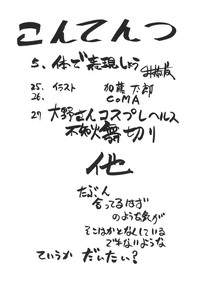 こんてんつ
5. 体で表現しょう
25. イラスト 加藤太郎
26. COMA
27 大野さんコスプレヘルス
舞切り
他
たぶん
合ってるはず
のような気が
そこはかとなくしている
でもないような
ていうか だいたい?